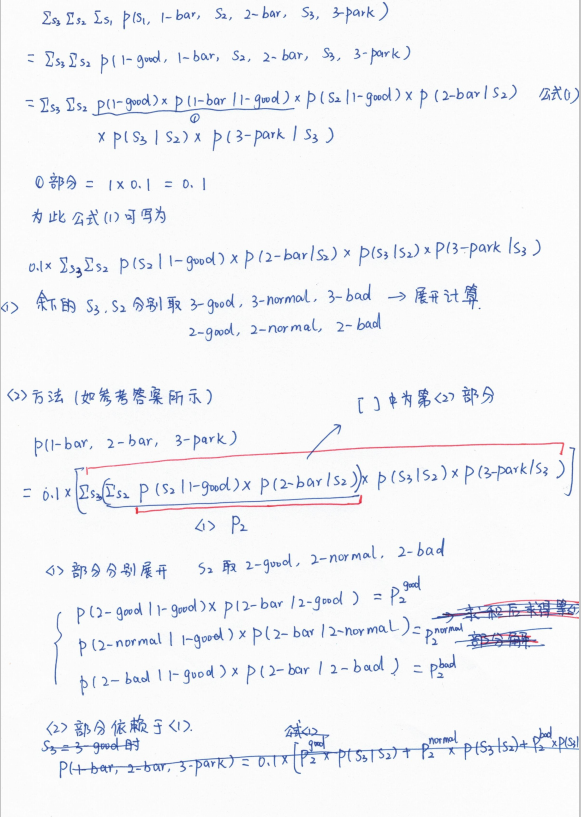 Σs3 Σs2 Σs1 p(S1, 1-bar, S2, 2-bar, S3, 3-park)
= Σs3 Σs2 p(1-good, 1-bar, S2, 2-bar, S3, 3-park)
= Σs3 Σs2 p(1-good) × p(1-bar | 1-good) × p(S2 | 1-good) × p(2-bar | S2) 公式(1)
①
× p(S3 | S2) × p(3-park | S3)
①部分 = 1 × 0.1 = 0.1
为此公式(1)可写为
0.1× Σs3 Σs2 p(S2 | 1-good) × p(2-bar | S2) × p(S3 | S2) × p(3-park | S3)
<1> 余下的 S3, S2 分别取 3-good, 3-normal, 3-bad → 展开计算.
2-good, 2-normal, 2-bad
<2> 方法 (如参考答案所示)
[ ] 中为第<2>部分
p(1-bar, 2-bar, 3-park)
= 0.1 × [Σs3 (Σs2 p(S2 | 1-good) × p(2-bar | S2)) × p(S3 | S2) × p(3-park | S3)]
<1> P2
<1> 部分分别展开 S2 取 2-good, 2-normal, 2-bad
p(2-good | 1-good) × p(2-bar | 2-good) = P2^good
p(2-normal | 1-good) × p(2-bar | 2-normal) = P2^normal
部分解
p(2-bad | 1-good) × p(2-bar | 2-bad) = P2^bad
<2> 部分依赖于<1>.
S3 = 3-good 时
公式<2>
p(1-bar, 2-bar, 3-park) = 0.1 × [P2^good × p(S3 | S2) + P2^normal × p(S3 | S2) + P2^bad × p(S3 |